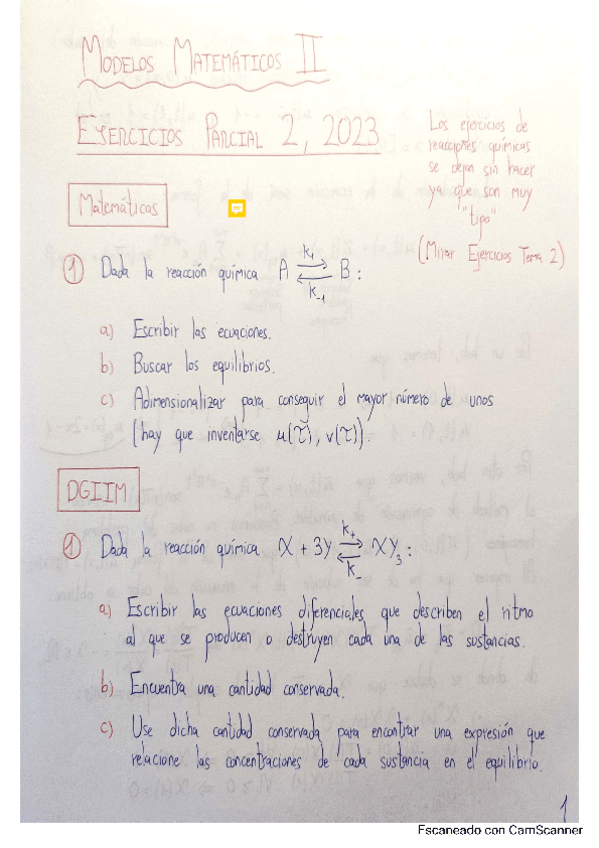 MODELOS MATEMÁTICOS II
EJERCICIOS PARCIAL 2, 2023
Los ejercicios de
reacciones químicas
se dejan sin hacer
ya que son muy
"tipo"
(Mirar Ejercicios Tema 2)
Matemáticas
① Dada la reacción química A ⇌ B :
k₁
k₋₁
a) Escribir las ecuaciones.
b) Buscar los equilibrios.
c) Adimensionalizar para conseguir el mayor número de unos
(hay que inventarse u(τ), v(τ)).
DGIIM
① Dada la reacción química X + 3Y ⇌ XY₃ :
k₊
k₋
a) Escribir las ecuaciones diferenciales que describen el ritmo
al que se producen o destruyen cada una de las sustancias.
b) Encuentra una cantidad conservada.
c) Use dicha cantidad conservada para encontrar una expresión que
relacione las concentraciones de cada sustancia en el equilibrio.
1
Escaneado con CamScanner